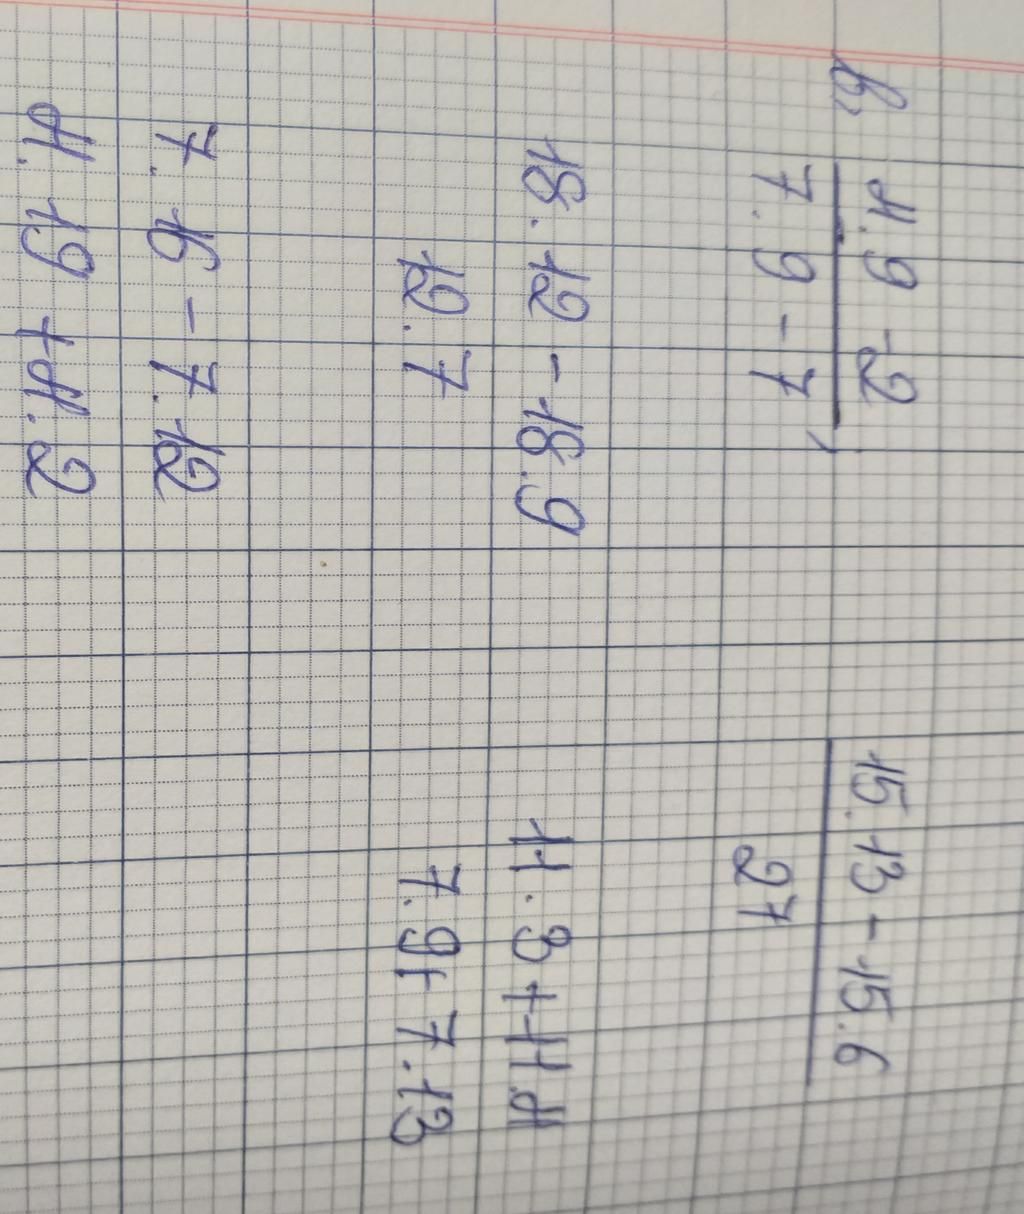 b,
4.9 -2
7.9 - 7
15.13 - 15.6
27
18.12 - 18.9
12.7
11.3 + 11.4
7.9+ 7.13
7.16 - 7.12
4.19 + 4.2